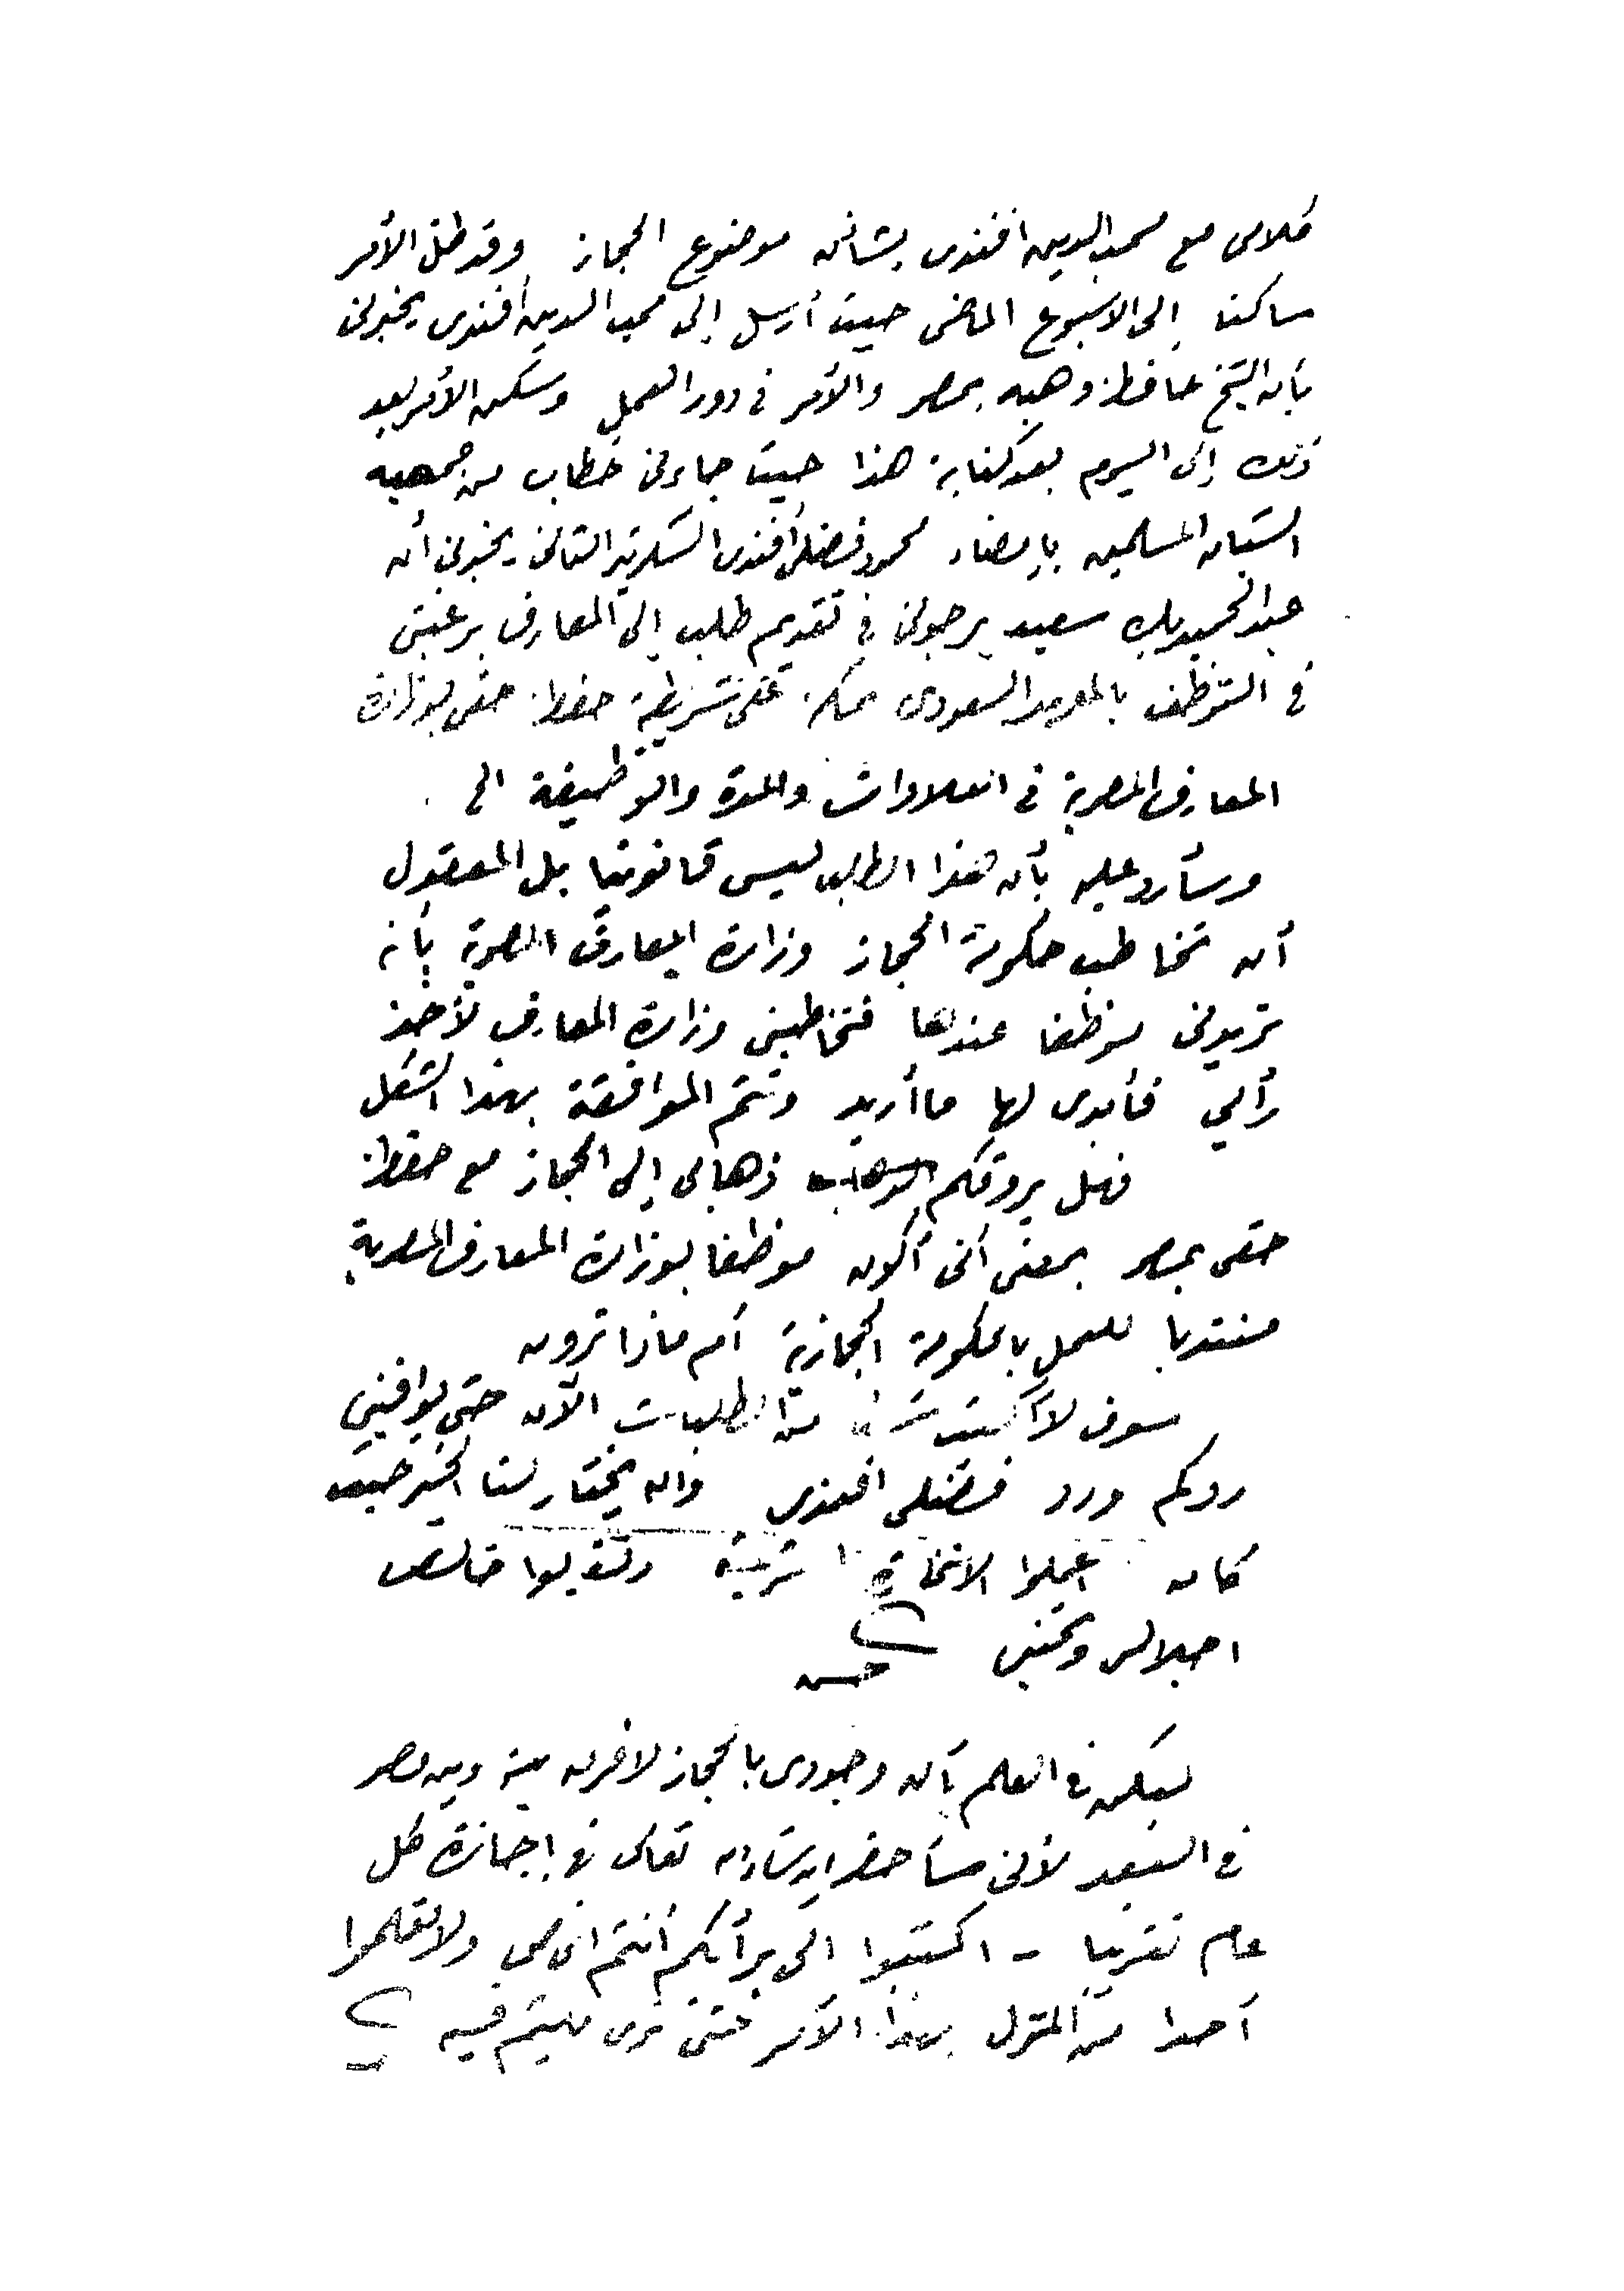 كلامى مع محب الدين افندى بشأن موضوع الحجاز وقد ظل الأمر
ساكنا إلى الاسبوع الماضى حيث أرسل إلى محب الدين أفندى يخبرنى
بأن الشيخ حافظ وهبه بمصر والأمر فى دور العمل وسكن الأمر بعد
ذلك إلى اليوم بعد كتابة هذا حيث جاءنى خطاب من جمعيه
الشبان المسلمين بإمضاء محمود فضلى أفندى السكرتير الثانى يخبرنى أن
عبد الحميد بك سعيد يرجونى فى تقديم طلب إلى المعارف برغبتى
فى التوظف بالمعهد السعودى بمكة على شريطة حفظ حقى بوزارة
المعارف المصرية فى العلاوات والمدة والوظيفة الخ .
وسأرد عليه بأن هذا الطلب ليس قانونيا بل المعقول
أن تخاطب حكومة الحجاز وزارة المعارف المصرية بأنها
تريدنى موظفا عندها فتخاطبنى وزارة المعارف لأخذ
رأيي فأبدى لها ما أريد وتتم الموافقة بهذا الشكل
فهل يروقكم ذهابى إلى الحجاز مع حفظ
حقى بمصر بمعنى أنى أكون موظفا بوزارة المعارف المصرية
منتدبا للعمل بالحكومة الحجازية أم ماذا ترون
سوف لا أكتب شيئا من الطلبات الآن حتى يوافينى
ردكم ورد فضلى افندى والله يختار لنا الخير حيث
كان اعملوا الاستخارة ا وتقبلوا خالص
اجلالى وتحيتى حسن
ليكن فى العلم بأن وجودى بالحجاز لا فرق بينه وبين مصر
فى البعد لأنى سأحضر إن شاء الله تعالى فى إجازة كل
عام تقريبا - اكتبوا الى برأيكم أنتم الخاص ولا تعلموا
أحدا من المنزل بهذا الأمر حتى نرى ما يتم فيه